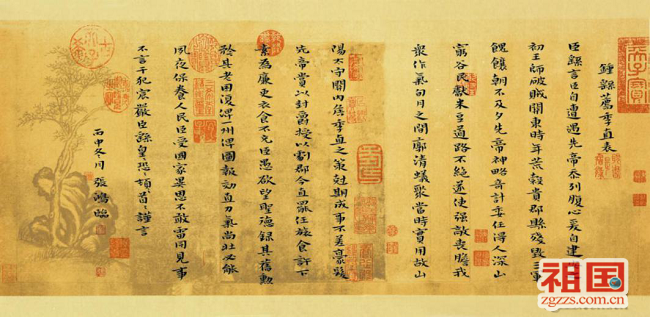 鍾繇薦季直表
臣繇言臣自遭遇先帝忝列腹心爰自建
初王師破賊關東時年荒穀貴郡縣殘毀三軍
餽饟朝不及夕先帝神略奇計委任得人深山
窮谷民獻米豆道路不絕遂使強敵喪膽我
衆作氣旬月之間廓清蟻聚當時實用故山
陽太守關內侯季直之策剋期成事不差豪髮
先帝賞以封爵授以劇郡今直罷任旅食許下
素為廉吏衣食不充臣愚欲望聖德錄其舊勳
矜其老困復俾一州俾圖報効直力氣尚壯必能
夙夜保養人民臣受國家異恩不敢雷同見事
不言干犯宸嚴臣繇皇恐頓首謹言
丙申冬月 張鴻臨
祖国
zgzzs.com.cn